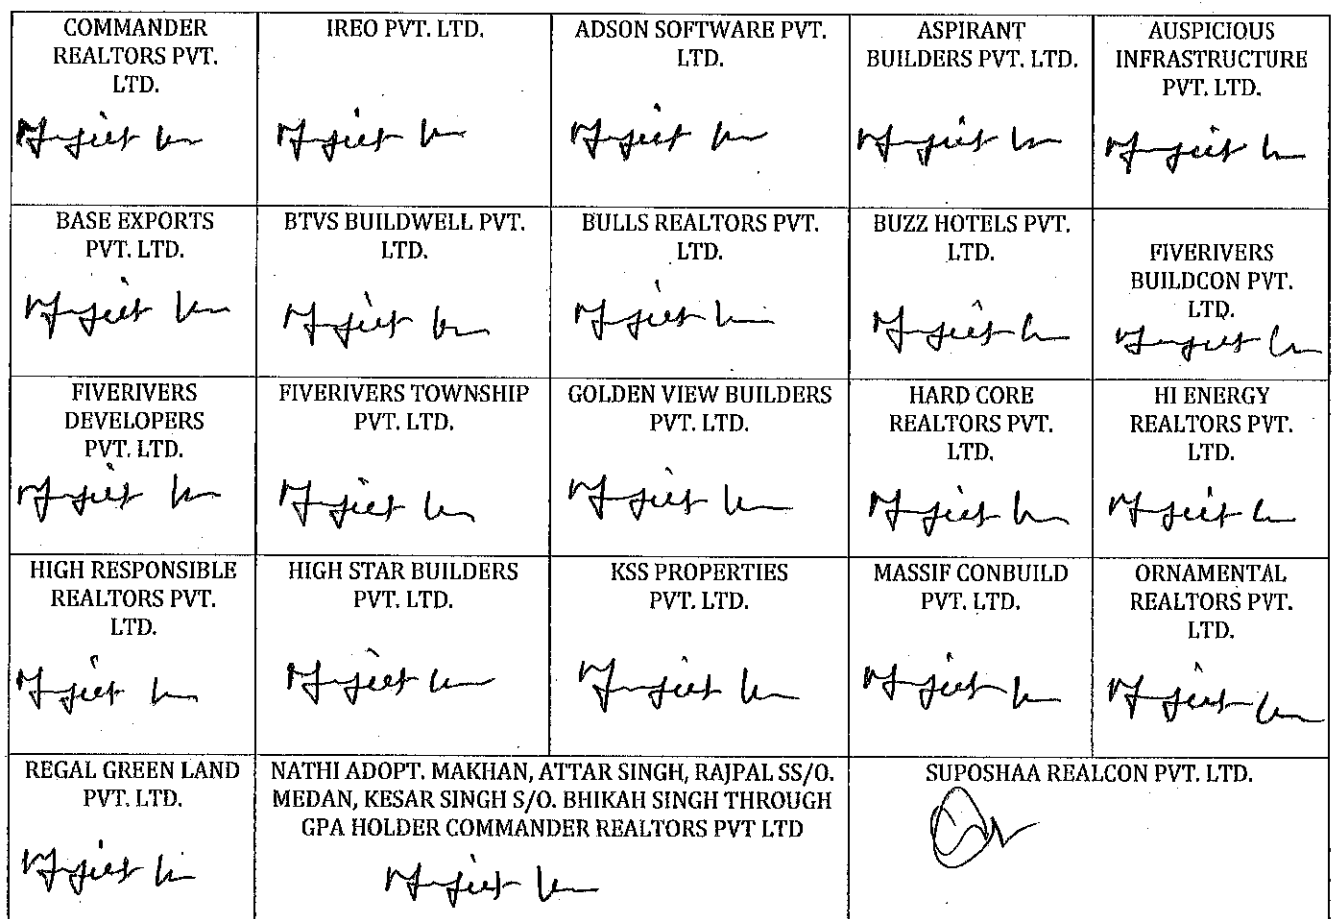 COMMANDER
REALTORS PVT.
LTD.
IREO PVT. LTD.
ADSON SOFTWARE PVT.
LTD.
ASPIRANT
BUILDERS PVT. LTD.
AUSPICIOUS
INFRASTRUCTURE
PVT. LTD.
BASE EXPORTS
PVT. LTD.
BTVS BUILDWELL PVT.
LTD.
BULLS REALTORS PVT.
LTD.
BUZZ HOTELS PVT.
LTD.
FIVERIVERS
BUILDCON PVT.
LTD.
FIVERIVERS
DEVELOPERS
PVT. LTD.
FIVERIVERS TOWNSHIP
PVT. LTD.
GOLDEN VIEW BUILDERS
PVT. LTD.
HARD CORE
REALTORS PVT.
LTD.
HI ENERGY
REALTORS PVT.
LTD.
HIGH RESPONSIBLE
REALTORS PVT.
LTD.
HIGH STAR BUILDERS
PVT. LTD.
KSS PROPERTIES
PVT. LTD.
MASSIF CONBUILD
PVT. LTD.
ORNAMENTAL
REALTORS PVT.
LTD.
REGAL GREEN LAND
PVT. LTD.
NATHI ADOPT. MAKHAN, ATTAR SINGH, RAJPAL SS/O.
MEDAN, KESAR SINGH S/O. BHIKAH SINGH THROUGH
GPA HOLDER COMMANDER REALTORS PVT LTD
SUPOSHAA REALCON PVT. LTD.